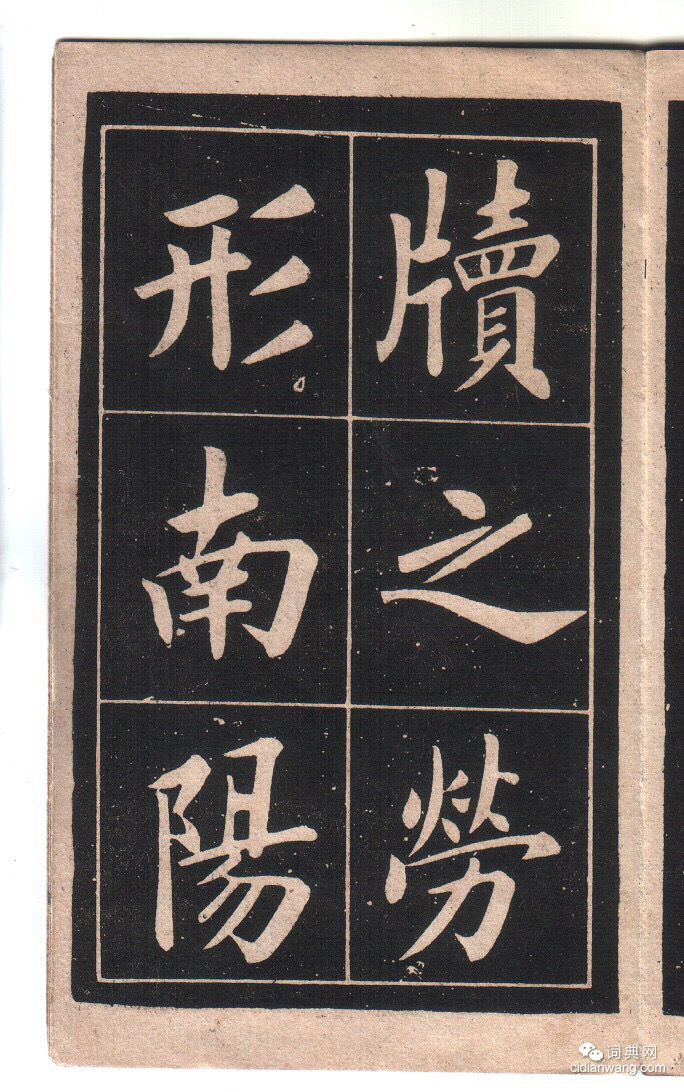 牘之勞
形南陽
词典网
cidianwang.com